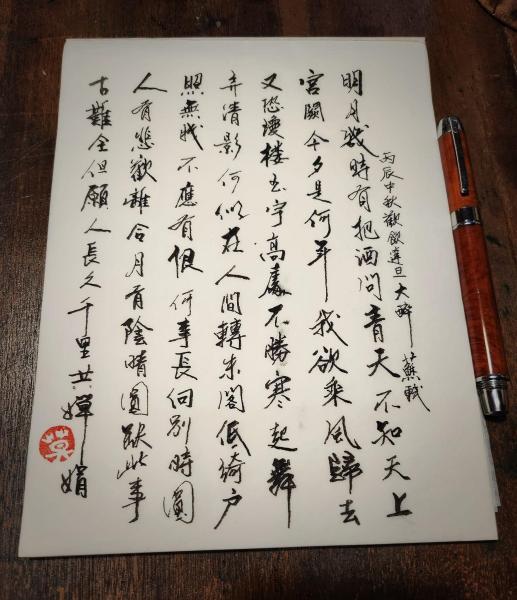 丙辰中秋歡飲達旦大醉 蘇軾
明月幾時有把酒問青天不知天上
宮闕今夕是何年我欲乘風歸去
又恐瓊楼玉宇高處不勝寒起舞
弄清影何似在人間轉朱閣低綺户
照無眠不應有恨何事長向別時圓
人有悲歡離合月有陰晴圓缺此事
古難全但願人長久千里共嬋娟